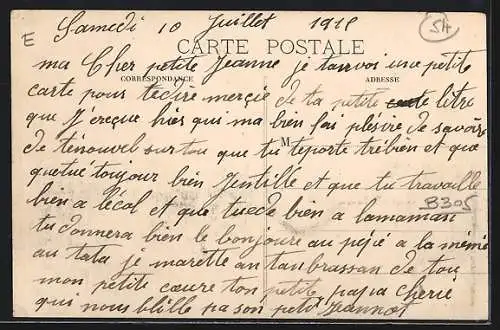 E
Samedi 10 Juillet 1915
54
CARTE POSTALE
ma Cher petite Jeanne je tanvoi une petite
CORRESPONDANCE
ADRESSE
carte pour tedire mercie de ta petite lètre
que J'ereçue hier qui ma bien fai plésire de savoire
M
de ténouvel sur tou que tu teporte tribien et que
quetué toujour bien Jentille et que tu travaille
B305
bien a lécol et que tuede bien a lamaman
tu donnera bien le bonjoure au pépé a la mémé
au tata je marette an tanbrassan de tou
mon petit cœure ton petit papa cherie
qui nous blille pa son petit Jeannot